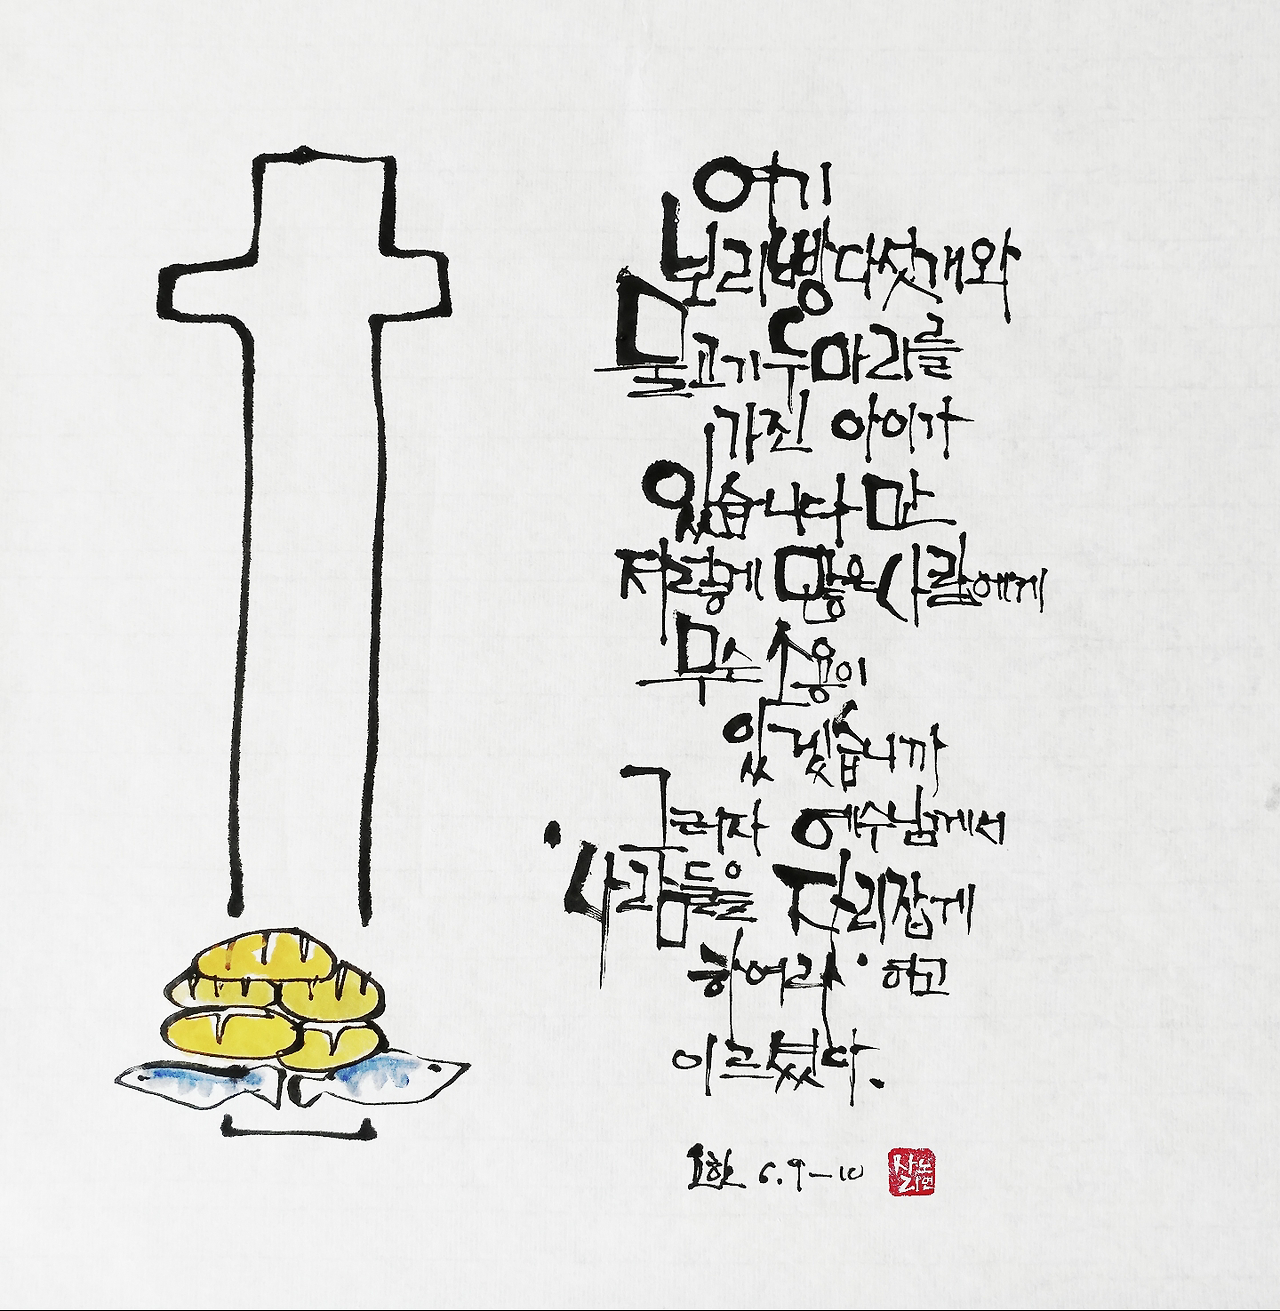 여기
보리빵 다섯개와
물고기 두마리를
가진 아이가
있습니다만
저렇게 많은 사람에게
무슨 소용이
있겠습니까
그러자 예수님께서
'사람들을 자리잡게
하여라' 하고
이르셨다.
요한 6.9-10